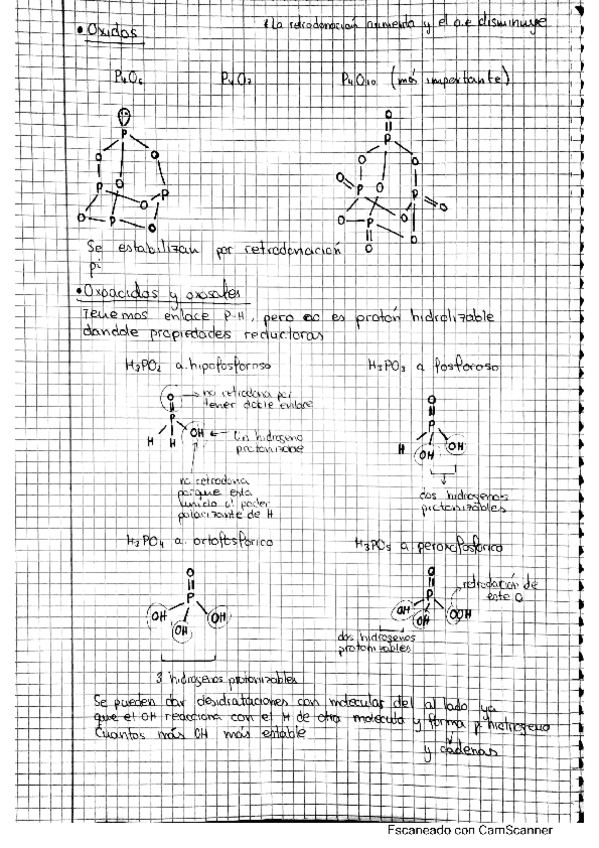 * La retrodonación aumenta y el a.e disminuye
• Oxidos
P4O6 P4O7 P4O10 (más importante)
Se estabilizan por retrodonación
pi
• Oxoacidos y oxosales
Tenemos enlace P-H, pero no es protón hidrolizable
dandole propiedades reductoras
H3PO2 a. hipofosforoso H3PO3 a fosforoso
no retrodona por
tener doble enlace
O
P
H H OH
Un hidrogeno
protonizable
no retrodona
porque esta
unido al poder
polarizante de H
O
P
H OH OH
dos hidrogenos
protonizables
H3PO4 a. ortofosforico H3PO5 a peroxofosforico
O
P
OH OH OH
3 hidrogenos protonizables
O
P
OH OH OOH
retrodonación de
este O
dos hidrogenos
protonizables
Se pueden dar desidrataciones con moleculas del al lado ya
que el OH reacciona con el H de otra molecula y forma p. hidrogeno
Cuantos más OH más estable
y cadenas
Escaneado con CamScanner